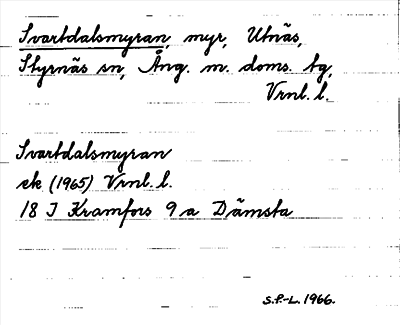 Svartdalsmyran, myr, Utnäs,
Styrnäs sn, Ång. m. doms. tg,
Vrnl. l.
Svartdalsmyran
ek (1965) Vrnl. l.
18 J Kramfors 9 a Dämsta
S.F-L. 1966.